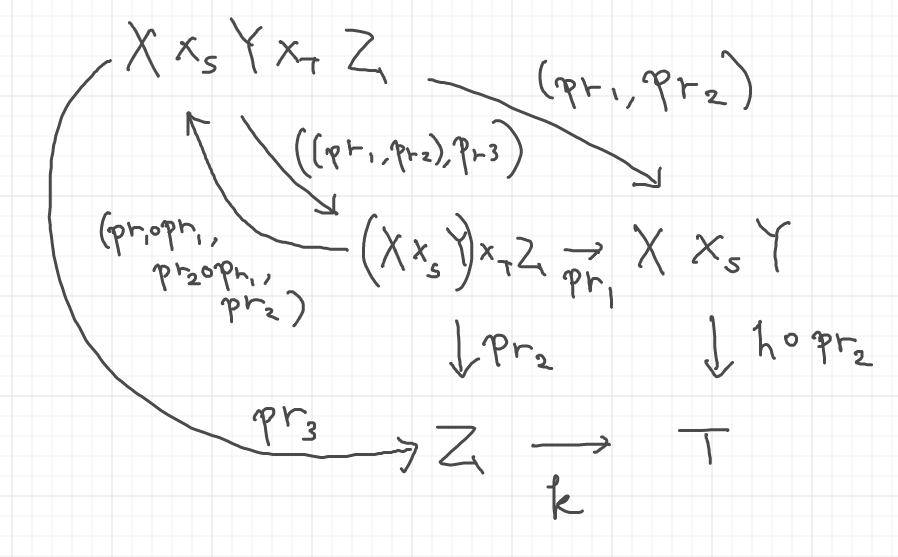 X ×_S Y ×_T Z
(pr_1, pr_2)
((pr_1, pr_2), pr_3)
(pr_1∘pr_1,
pr_2∘pr_1,
pr_2)
(X ×_S Y) ×_T Z → X ×_S Y
pr_1
↓ pr_2 ↓ h∘pr_2
pr_3
Z → T
k